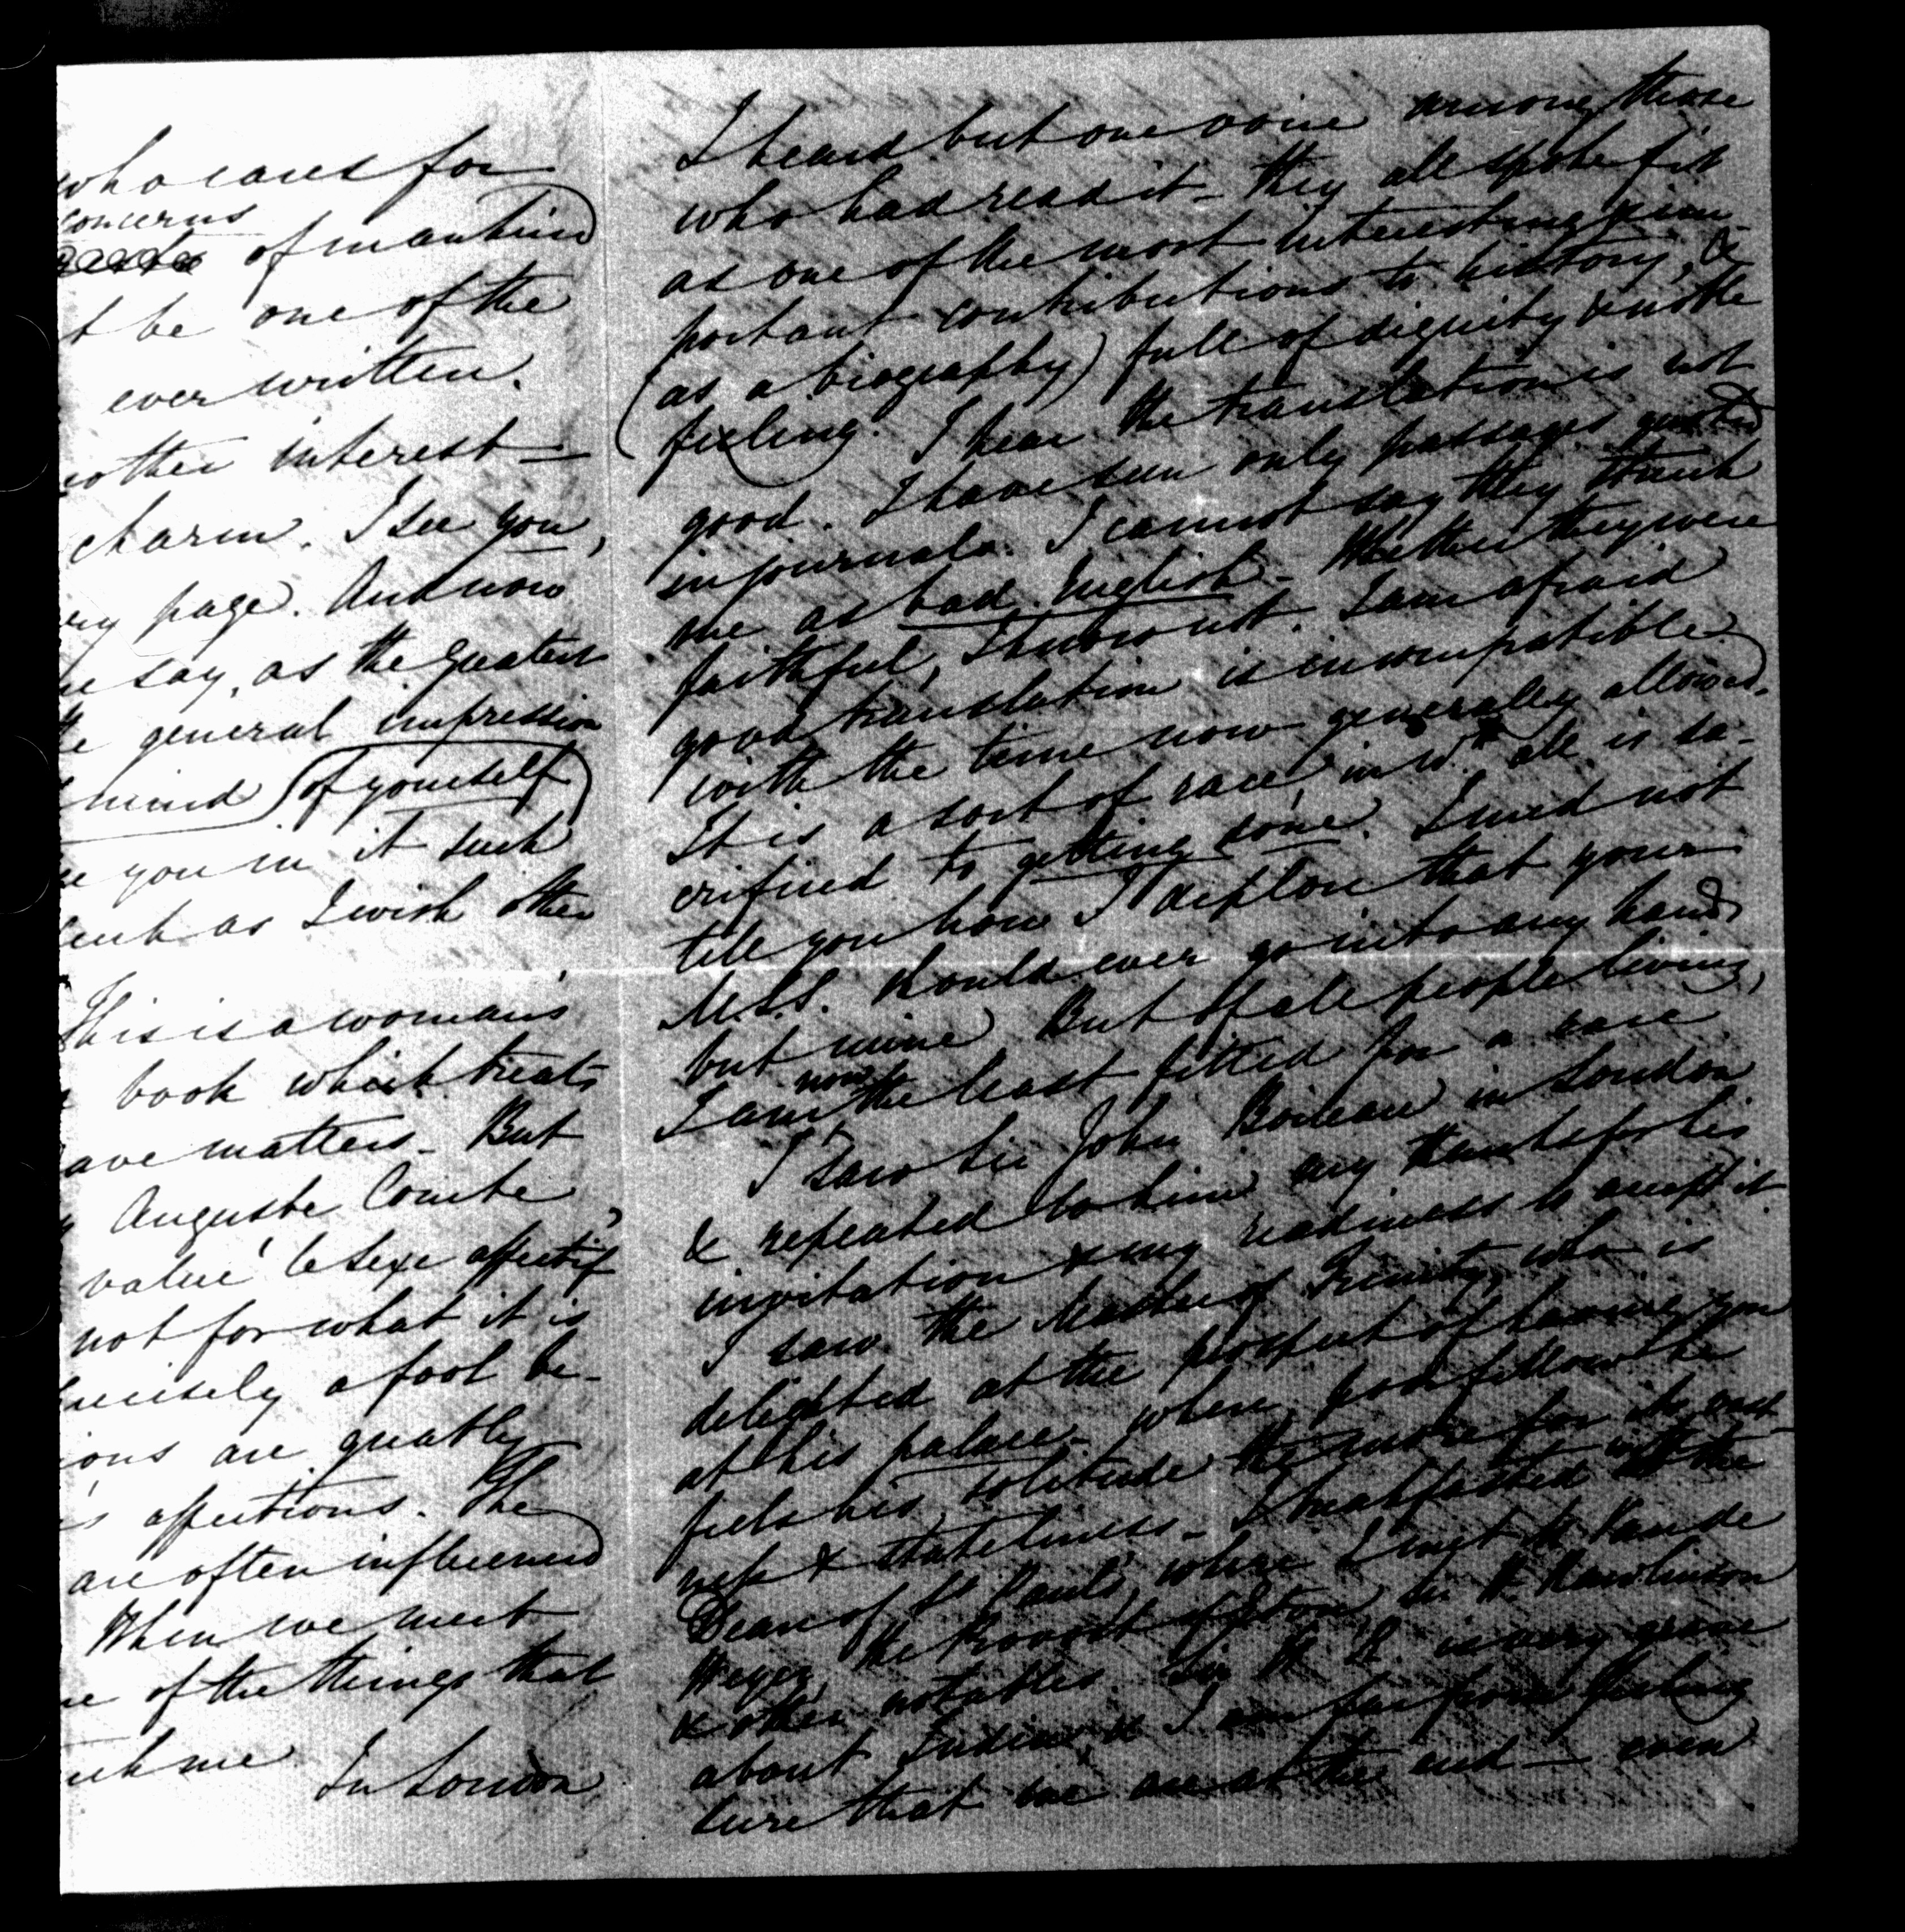 who cares for
concerns
of mankind
t be one of the
ever written.
nother interest —
charm. I see you,
ery page. And now
he say, as the greatest
the general impression
mind (of yourself)
ee you in it such
such as I wish other
This is a woman's
book which treats
ave matters. But
Auguste Comte,
value 'le sexe affectif'
not for what it is
precisely a fool be-
ions are greatly
is affections. The
are often influenced
When we meet
ne of the things that
uch me. In London
I heard but one voice among those
who had read it – they all spoke of it
as one of the most interesting & im-
portant contributions to history, &
(as a biography) full of dignity & noble
feeling. I hear the translation is not
good. I have seen only passages quoted
in journals. I cannot say they struck
me as bad English – Whether they were
faithful, I know not. I am afraid
good translation is incompatible
with the time now generally allowed.
It is a sort of race in wh. all is sa-
crificed to getting done. I need not
tell you how I deplore that your
M.S.S. should ever go into any hands
but mine. But of all people living,
now
I am the least fitted for a race.
I saw Sir John Boileau in London
& repeated to him my thanks for his
invitation & my readiness to accept it.
I saw the Master of Trinity, who is
delighted at the prospect of having you
at his palace – where, poor fellow he
feels his solitude the more for its vast-
ness & stateliness – I breakfasted with the
Dean of St Paul's, where I met M Van de
Weyer, the Provost of Eton, Sir H Rawlinson
& other notables. Sir H. R. is very grave
about India, & I am far from feeling
sure that we are at the end – even